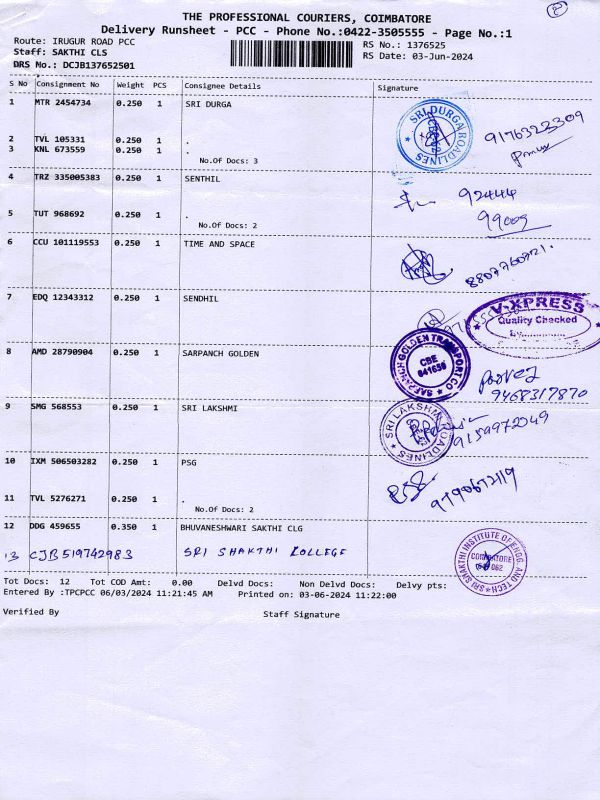 THE PROFESSIONAL COURIERS, COIMBATORE
Delivery Runsheet - PCC - Phone No.:0422-3505555 - Page No.:1
Route: IRUGUR ROAD PCC
RS No.: 1376525
Staff: SAKTHI CLS
RS Date: 03-Jun-2024
DRS No.: DCJB137652501
S No Consignment No Weight PCS Consignee Details Signature
1 MTR 2454734 0.250 1 SRI DURGA
SRI DURGA ROADLINES
9176323309
2 TVL 105331 0.250 1 .
3 KNL 673559 0.250 1 .
No.Of Docs: 3
4 TRZ 335005383 0.250 1 SENTHIL
92444
99009
5 TUT 968692 0.250 1 .
No.Of Docs: 2
6 CCU 101119553 0.250 1 TIME AND SPACE
8807760721.
7 EDQ 12343312 0.250 1 SENDHIL
V-XPRESS
Quality Checked
8 AMD 28790904 0.250 1 SARPANCH GOLDEN
GOLDEN TRANSPORT CO
CBE
641659
9468317870
9 SMG 568553 0.250 1 SRI LAKSHMI
SRI LAKSHMI ROADLINES
9159972049
10 IXM 506503282 0.250 1 PSG
9790672119
11 TVL 5276271 0.250 1 .
No.Of Docs: 2
12 DDG 459655 0.350 1 BHUVANESHWARI SAKTHI CLG
13 CJB 519742983 SRI SHAKTHI KOLLEGE
SRI SHAKTHI INSTITUTE OF ENGG. AND TECH
COIMBATORE
Tot Docs: 12 Tot COD Amt: 0.00 Delvd Docs: Non Delvd Docs: Delvy pts:
Entered By :TPCPCC 06/03/2024 11:21:45 AM Printed on: 03-06-2024 11:22:00
Verified By Staff Signature